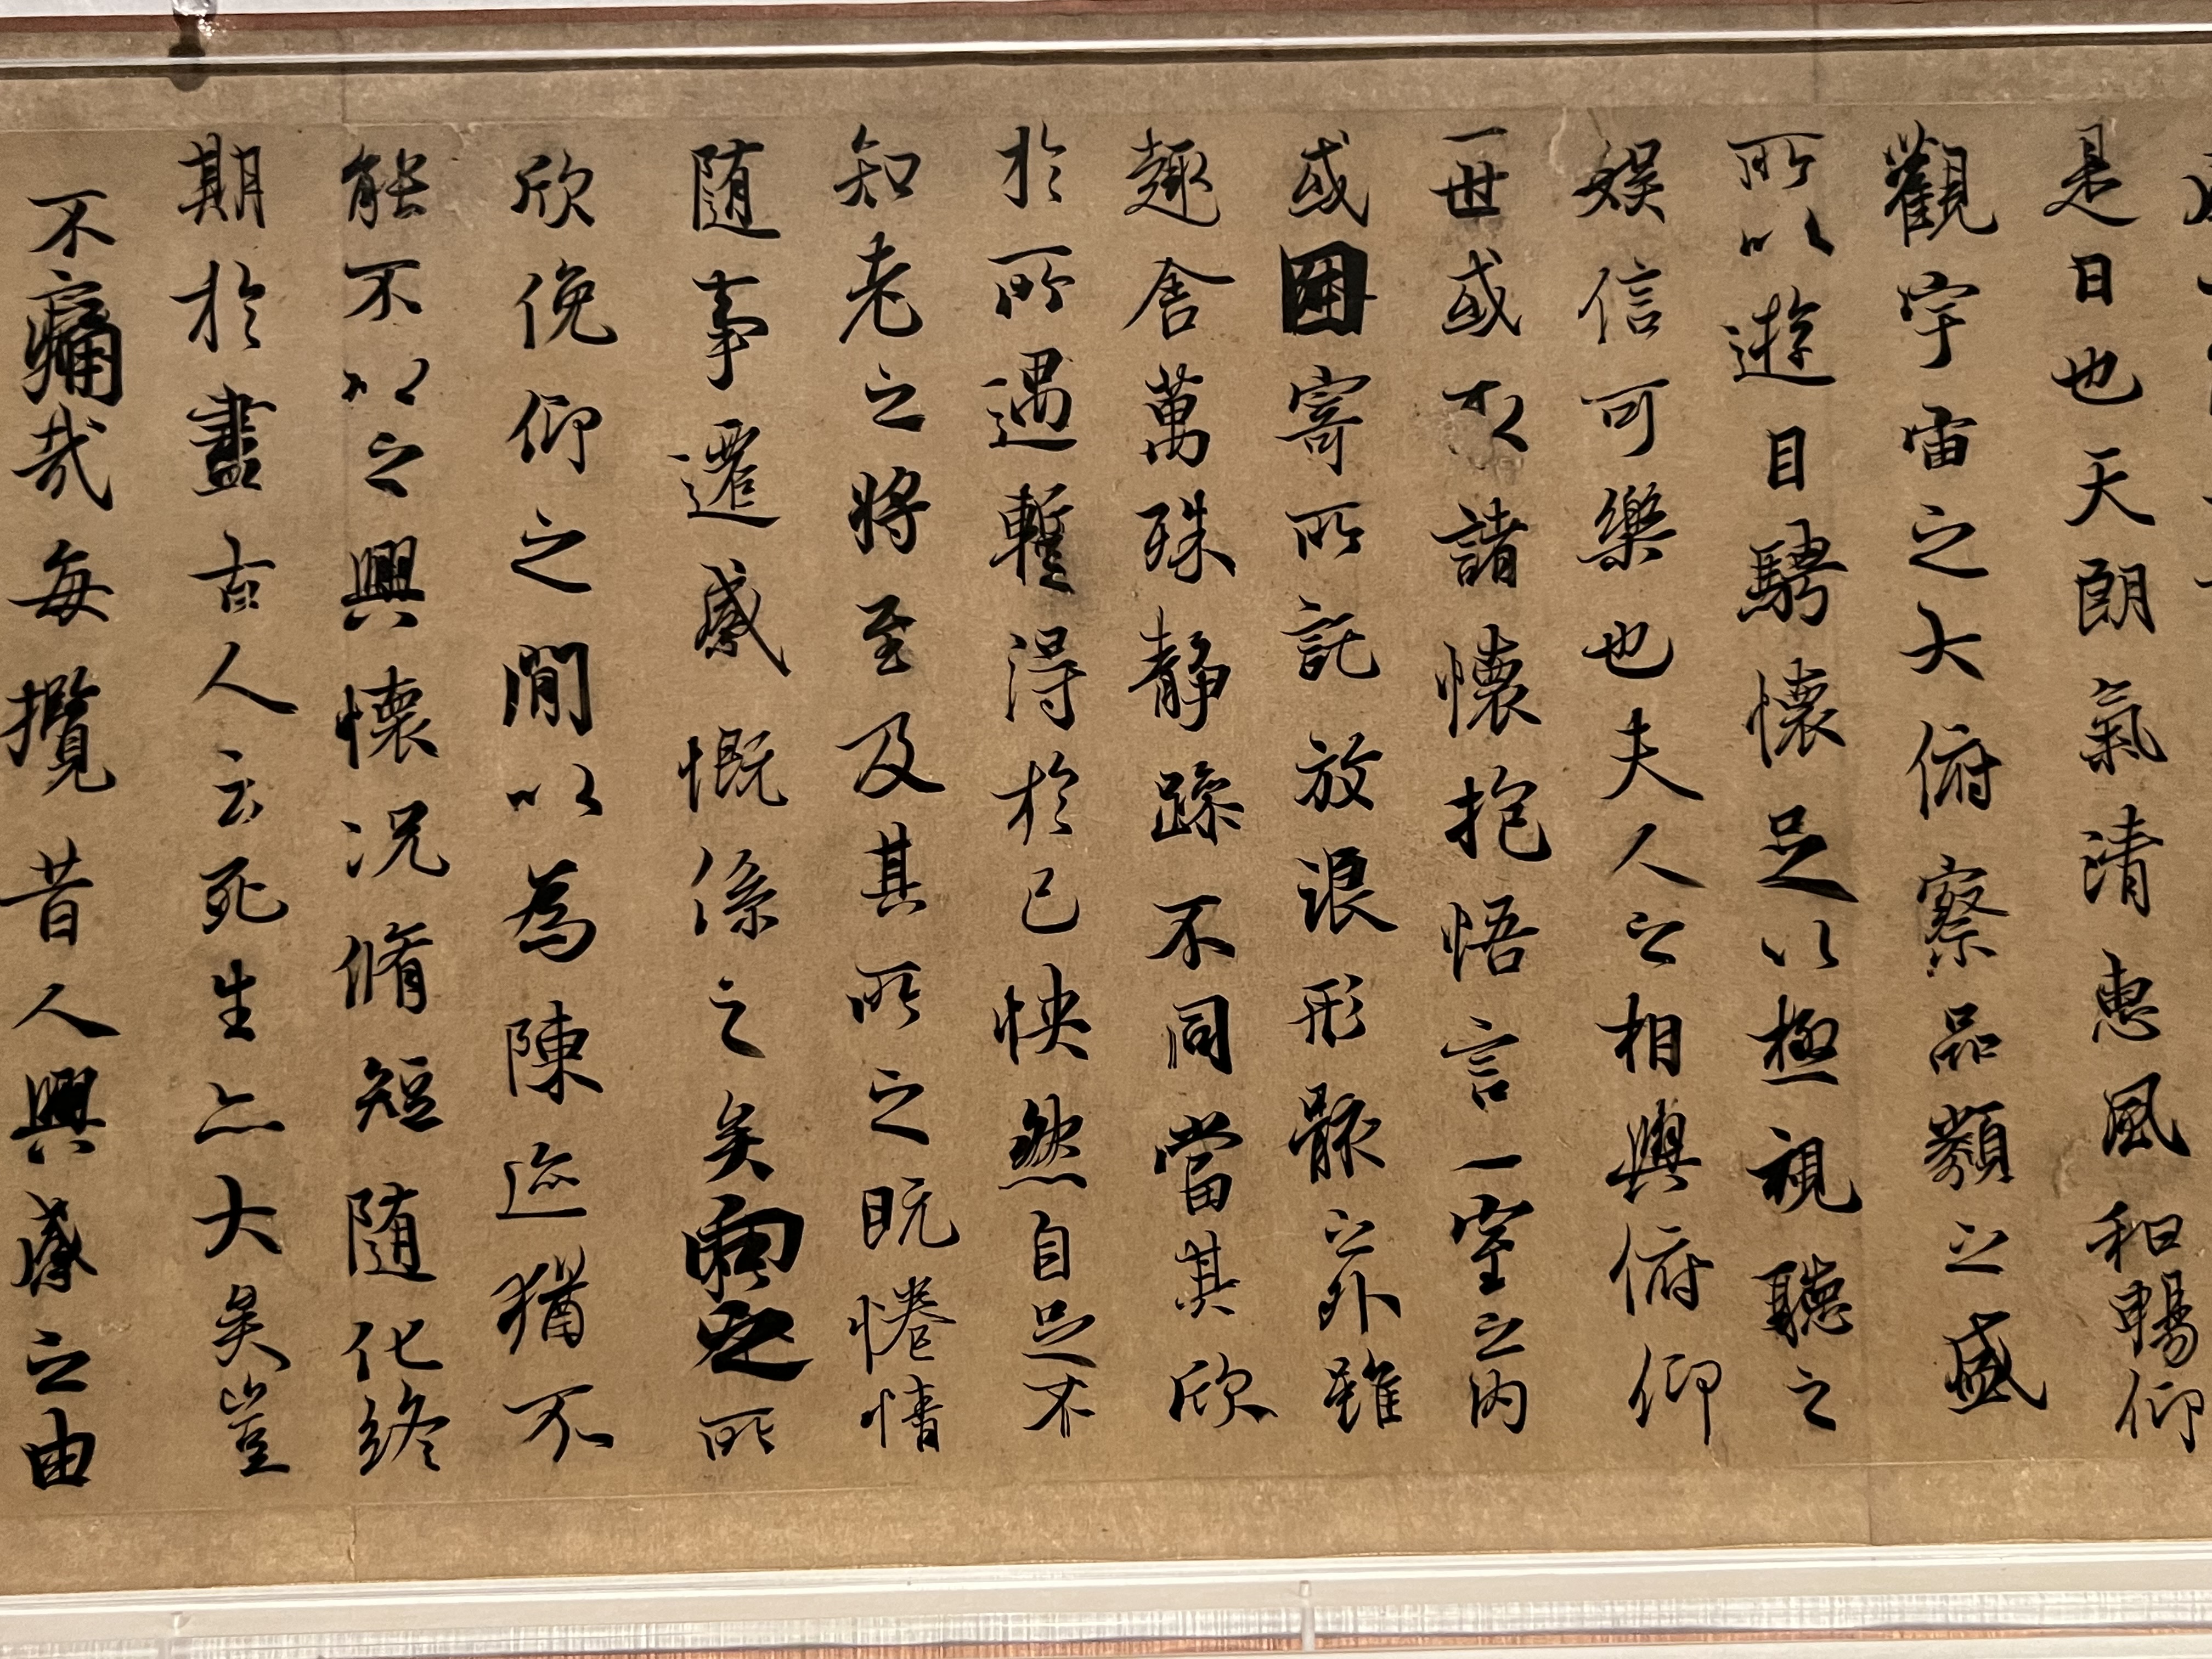 是日也天朗氣清惠風和暢仰
觀宇宙之大俯察品類之盛
所以遊目騁懷足以極視聽之
娛信可樂也夫人之相與俯仰
一世或取諸懷抱悟言一室之內
或因寄所託放浪形骸之外雖
趣舍萬殊靜躁不同當其欣
於所遇暫得於己快然自足不
知老之將至及其所之既惓情
隨事遷感慨係之矣向之所
欣俛仰之閒以為陳迹猶不
能不以之興懷況脩短隨化終
期於盡古人云死生亦大矣豈
不痛哉每攬昔人興感之由